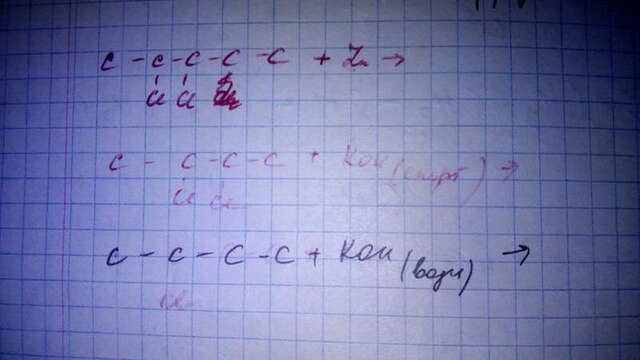 C - C - C - C - C + Zn →
Cl Cl
C - C - C - C + KOH (спирт) →
Cl Cl
C - C - C - C + KOH (водн) →
Cl